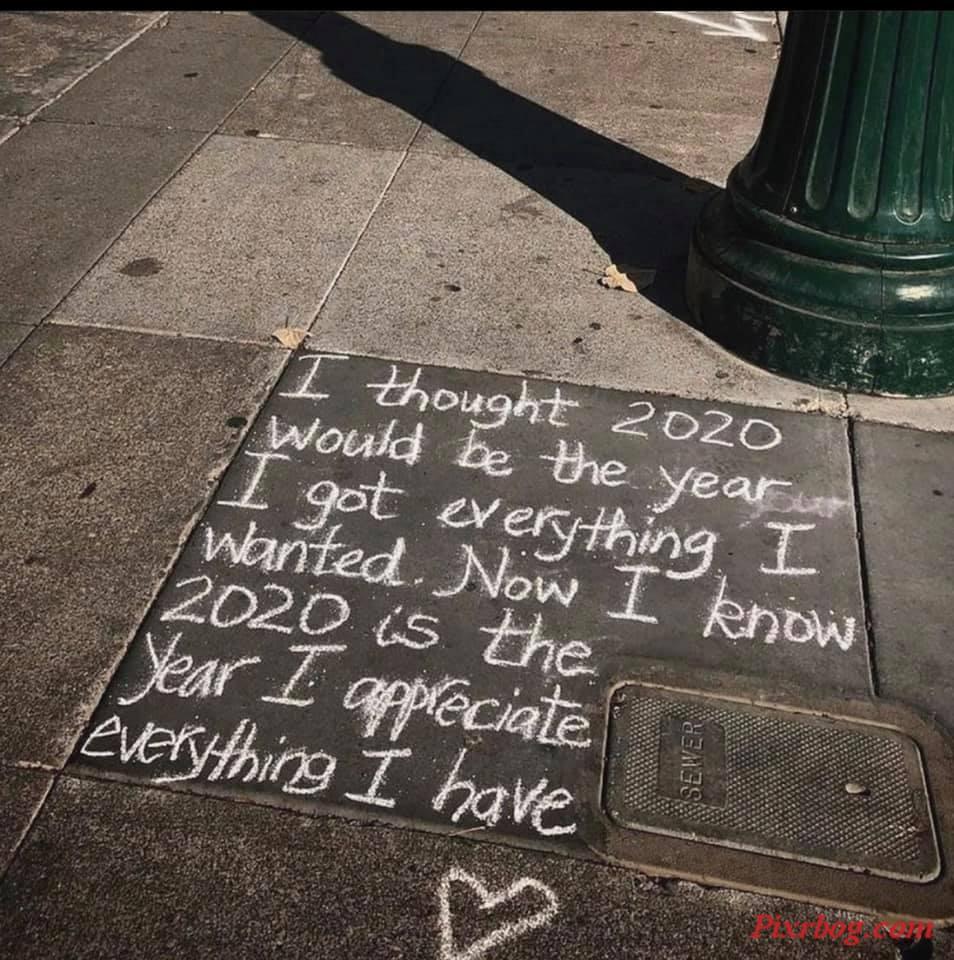 I thought 2020
would be the year
I got everything I
wanted. Now I know
2020 is the
year I appreciate
everything I have
SEWER
Pixrbog.com